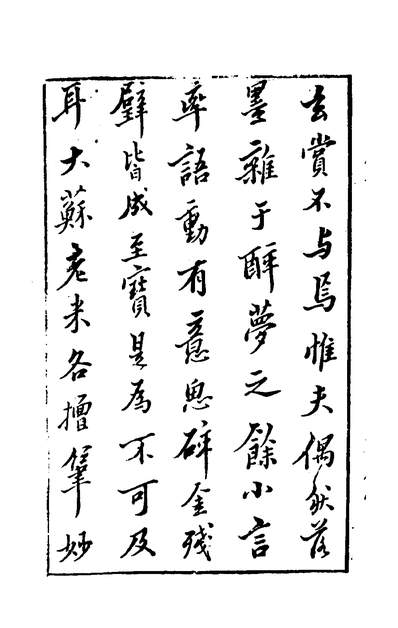 玄賞不与焉惟夫偶然落
墨雜于醉夢之餘小言
率語動有意思碎金殘
璧皆成至寶是為不可及
耳大蘇老米各擅筆妙